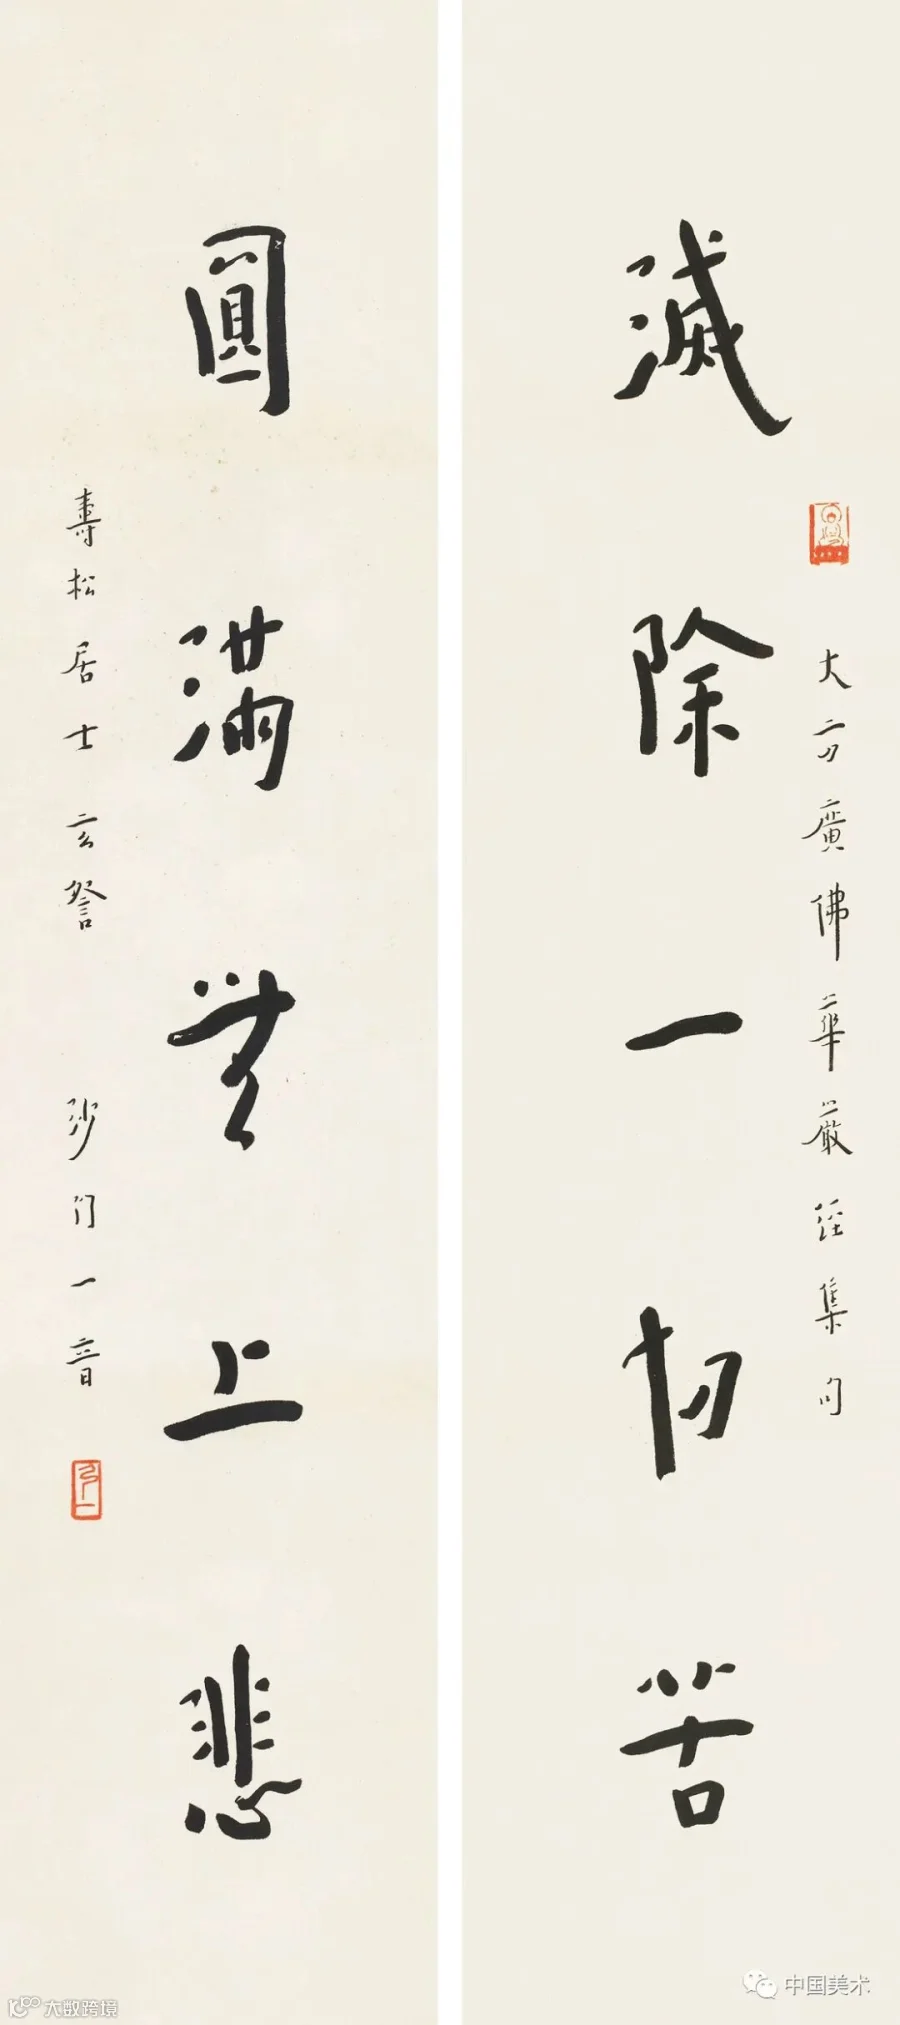 滅除一切苦
大方廣佛華嚴經集句
圓滿無上悲
壽松居士玄詧
沙門一音
中国美术
大数跨境